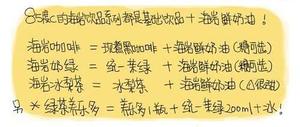 85度C的海岩飲品系列都是基础飲品+海岩鲜奶油!
海岩咖啡 = 现煮黑咖啡+海岩鲜奶油(糖可选)
海岩奶绿 = 统一茉绿 + 海岩鲜奶油(糖可选)
海岩冰梨茶 = 冰梨茶 + 海岩鲜奶油(△很甜)
另 * 绿茶養乐多 = 養乐多1瓶+统一茉绿200ml+冰!